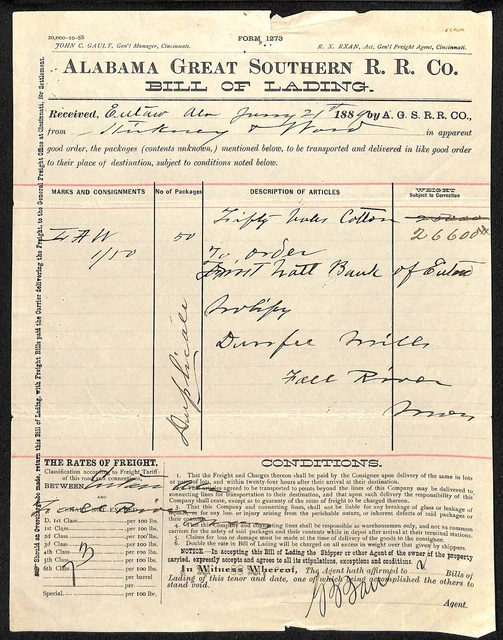 20,000-10-88
FORM 1273
JOHN C. GAULT, Gen'l Manager, Cincinnati.
R. X. RYAN, Act. Gen'l Freight Agent, Cincinnati.
ALABAMA GREAT SOUTHERN R. R. CO.
BILL OF LADING.
Received, Eutaw Ala 21st 1889 by A. G. S. R. R. CO.,
from & Ward in apparent
good order, the packages (contents unknown,) mentioned below, to be transported and delivered in like good order
to their place of destination, subject to conditions noted below.
MARKS AND CONSIGNMENTS
No of Packages
DESCRIPTION OF ARTICLES
WEIGHT
Subject to Correction
Fifty bales Cotton
50
26600
1/50
To order
First Natl Bank of Eutaw
Notify
Durfee Mills
Fall River
Mass
Duplicate
THE RATES OF FREIGHT.
Classification according to Freight Tariff
of this road and connections.
BETWEEN
AND
D. 1st Class per 100 lbs.
1st Class per 100 lbs.
2d Class per 100 lbs.
3d Class per 100 lbs.
4th Class per 100 lbs.
5th Class per 100 lbs.
6th Class per 100 lbs.
per barrel
per 100 lbs.
Special per 100 lbs.
73
CONDITIONS.
1. That the Freight and Charges thereon shall be paid by the Consignee upon delivery of the same in lots
or part lots, and within twenty-four hours after their arrival at their destination.
agreed to be transported beyond the lines of this Company may be delivered to
connecting lines for transportation to their destination, and that upon such delivery the responsibility of this
Company shall cease, except as to guaranty of the rates of freight to be charged thereon.
3. That this Company and connecting lines, shall not be liable for any breakage of glass or leakage of
liquors, or for any loss or injury arising from the perishable nature, or inherent defects of said packages or
their contents.
4. That this Company and connecting lines shall be responsible as warehousemen only, and not as common
carriers for the safety of said packages and their contents while in depot after arrival at their terminal stations.
5. Claims for loss or damage must be made at time of delivery of the goods to the consignee.
6. Double the rate in Bill of Lading will be charged on all excess in weight over that given by shippers.
NOTICE.—In accepting this Bill of Lading the Shipper or other Agent of the owner of the property
carried, expressly accepts and agrees to all its stipulations, exceptions and conditions
In Witness Whereof, The Agent hath affirmed to 2 Bills of
Lading of this tenor and date, one of which being accomplished the others to
stand void.
Agent.